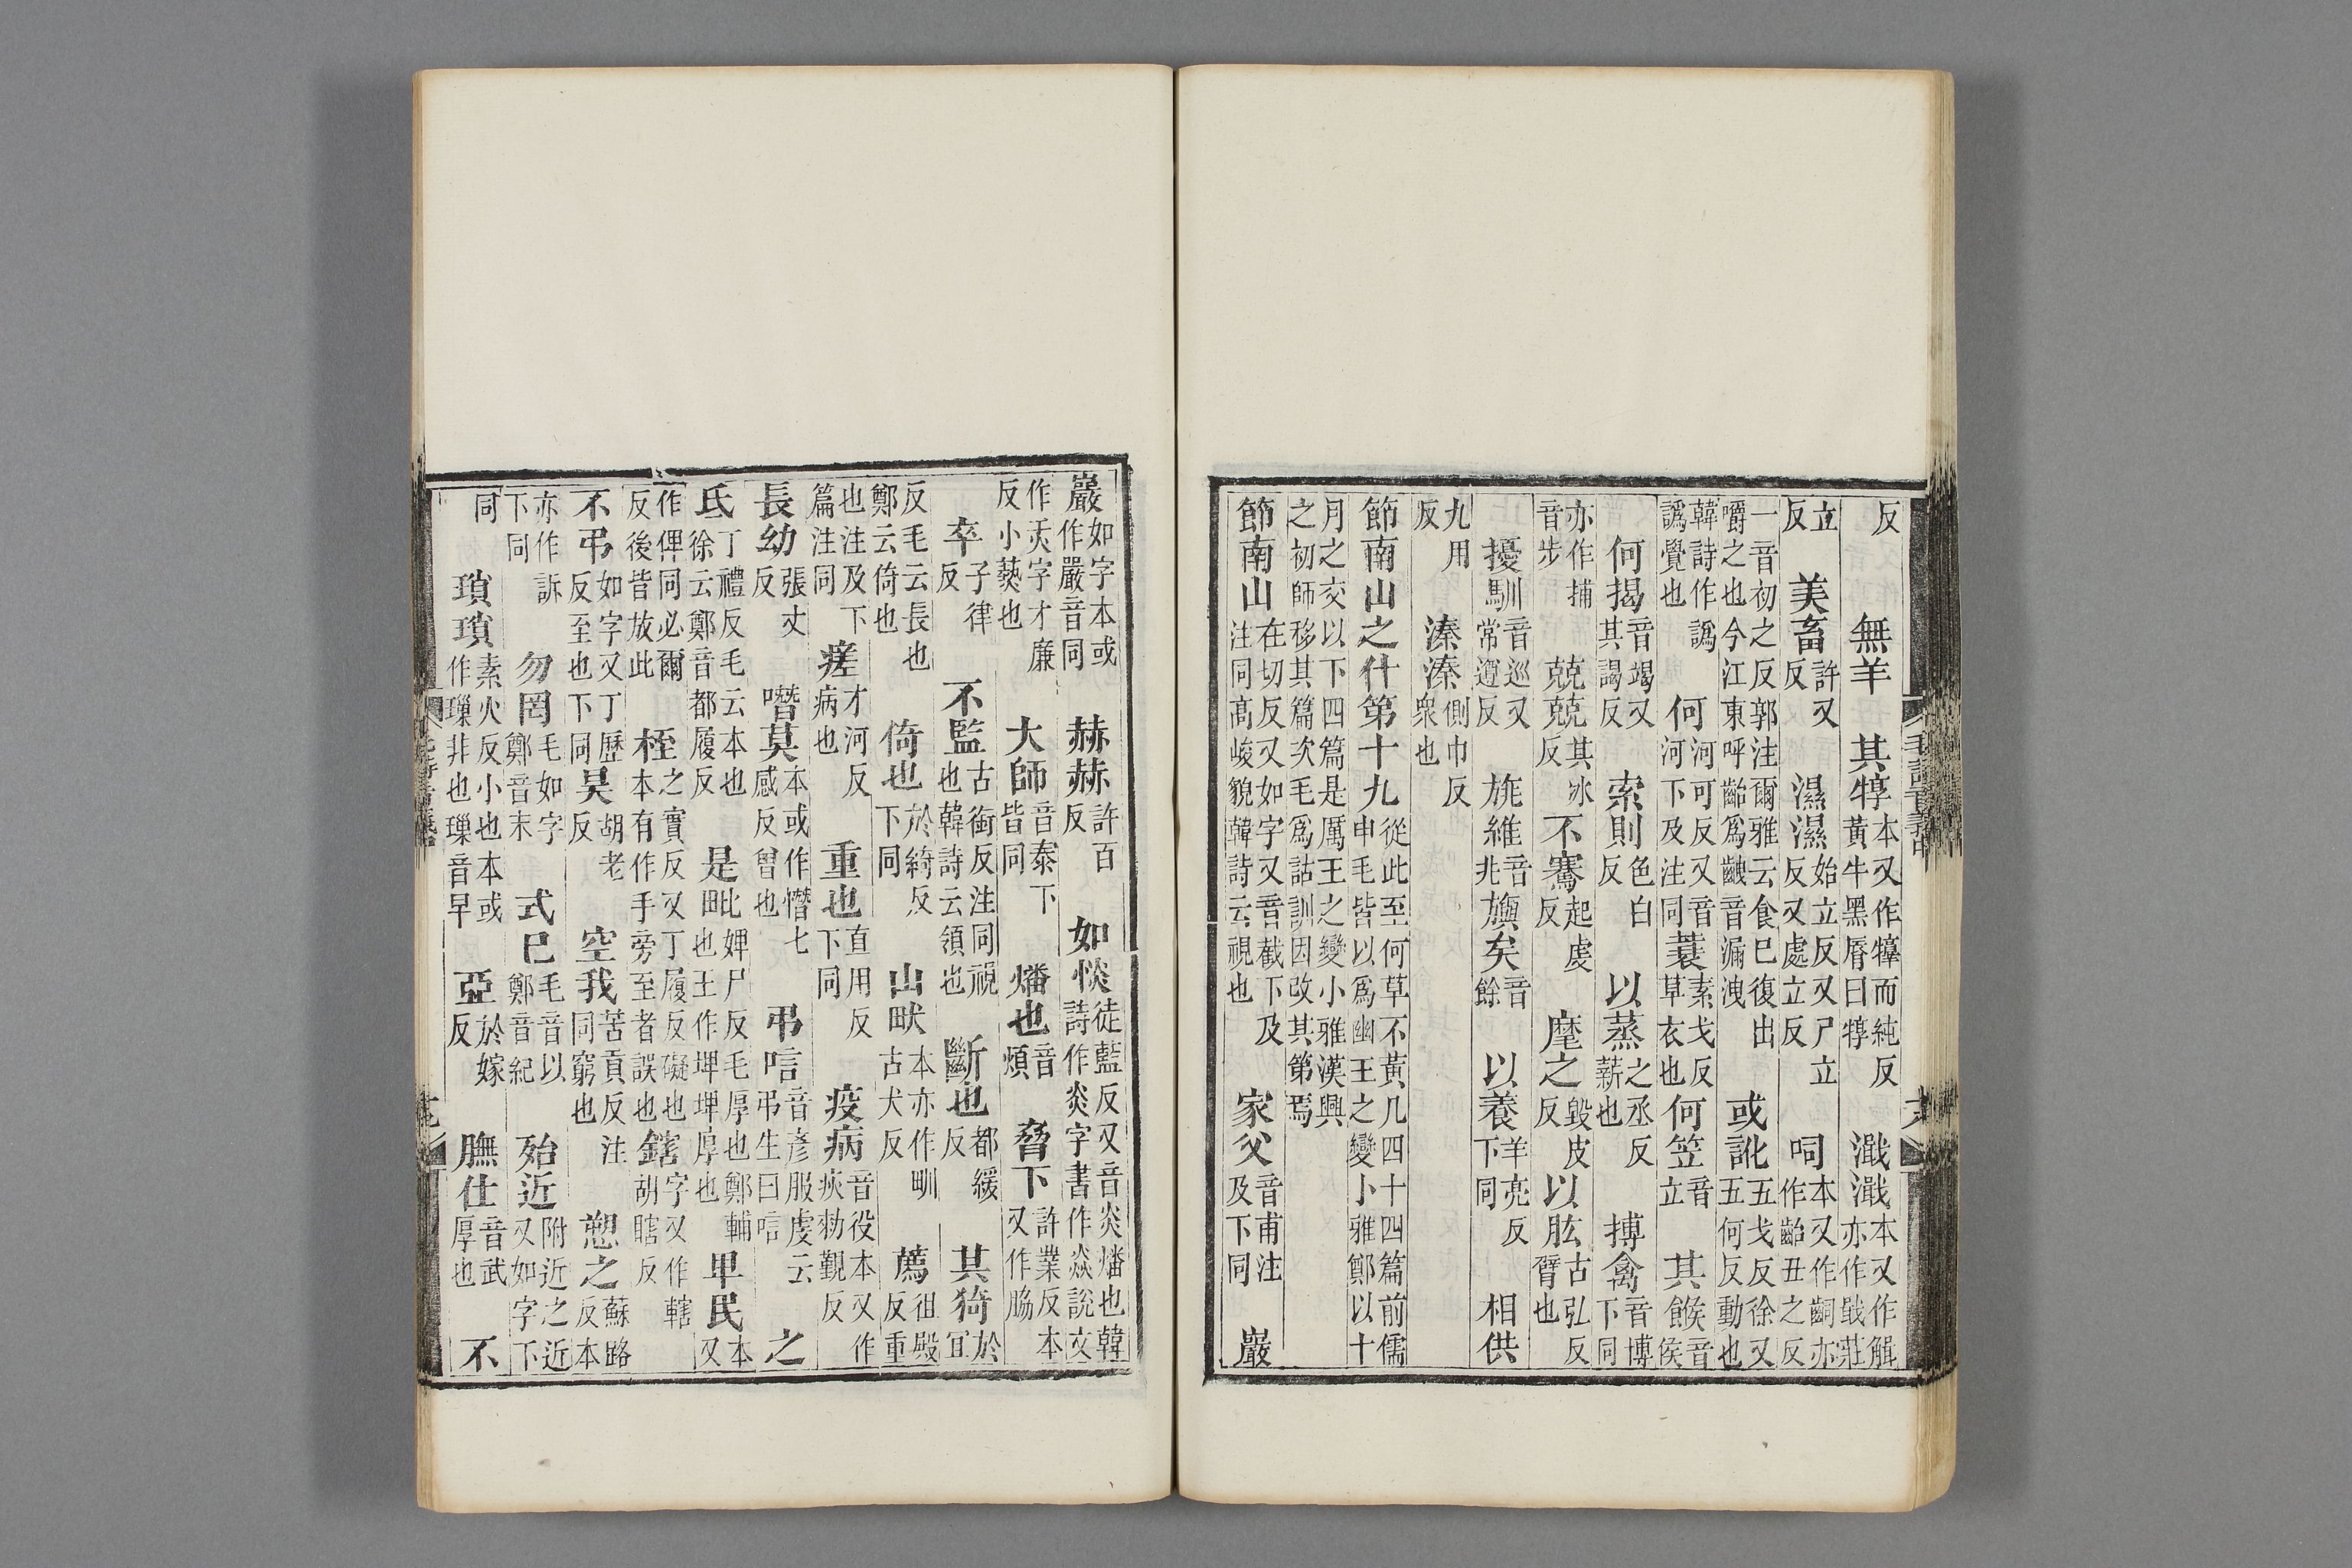 毛詩音義中
反　無羊　其犉本又作犉而純反黃牛黑脣曰犉　濈濈本又作觧亦作戢莊
立反　美畜許又反　濕濕始立反又尸立反又處立反　呞本又作亦作齝丑之反
一音初之反郭注爾雅云食已復出嚼之也今江東呼齝爲齥音漏洩　或訛五戈反徐又五何反動也
韓詩作譌譌覺也　何河可反又音河下及注同　蓑素戈反草衣也　何笠音立　其餱音侯
何揭音竭又其謁反　索則色白反　以蒸之丞反薪也　搏禽音博下同
亦作捕音步　兢兢其冰反　不騫起虔反　麾之毀皮反　以肱古弘反臂也
擾馴音巡又常遵反　旐維音兆　旟矣音餘　以養羊亮反下同　相供
九用反　溱溱側巾反衆也
節南山之什第十九從此至何草不黃凡四十四篇前儒申毛皆以爲幽王之變小雅鄭以十
月之交以下四篇是厲王之變小雅漢興之初師移其篇次毛爲詁訓因改其第焉
節南山在切反又如字又音截下及注同高峻貌韓詩云視也　家父音甫注及下同　巖
巖如字本或作嚴音同　赫赫許百反　如惔徒藍反又音炎燔也韓詩作炎字書作焱說文
作字才廉反小爇也　大師音泰下皆同　燔也音煩　脅下許業反本又作脇
卒子律反　不監古銜反注同視也韓詩云領也　斷也都緩反　其猗於宜
反毛云長也鄭云倚也　倚也於綺反下同　山畎本亦作甽古犬反　薦徂殿反重
也注及下篇注同　瘥才河反病也　重也直用反下同　疫病音役本又作疢勑覲反
長幼張丈反　噆莫本或作憯七感反曾也　弔唁音彥服虔云弔生曰唁　之
氐丁禮反毛云本也徐云鄭音都履反　是毗婢尸反毛厚也鄭輔也王作埤埤厚也　卑民本又
作俾同必爾反後皆放此　桎之實反又丁履反礙也本有作手旁至者誤也　鎋字又作轄胡瞎反
不弔如字又丁歷反至也下同　昊胡老反　空我苦貢反注同窮也　愬之蘇路反本
亦作訴下同　勿罔毛如字鄭音末　式已毛音以鄭音紀　殆近附近之近又如字下
同　瑣瑣素火反小也本或作璅非也璅音早　亞於嫁反　膴仕音武厚也　不